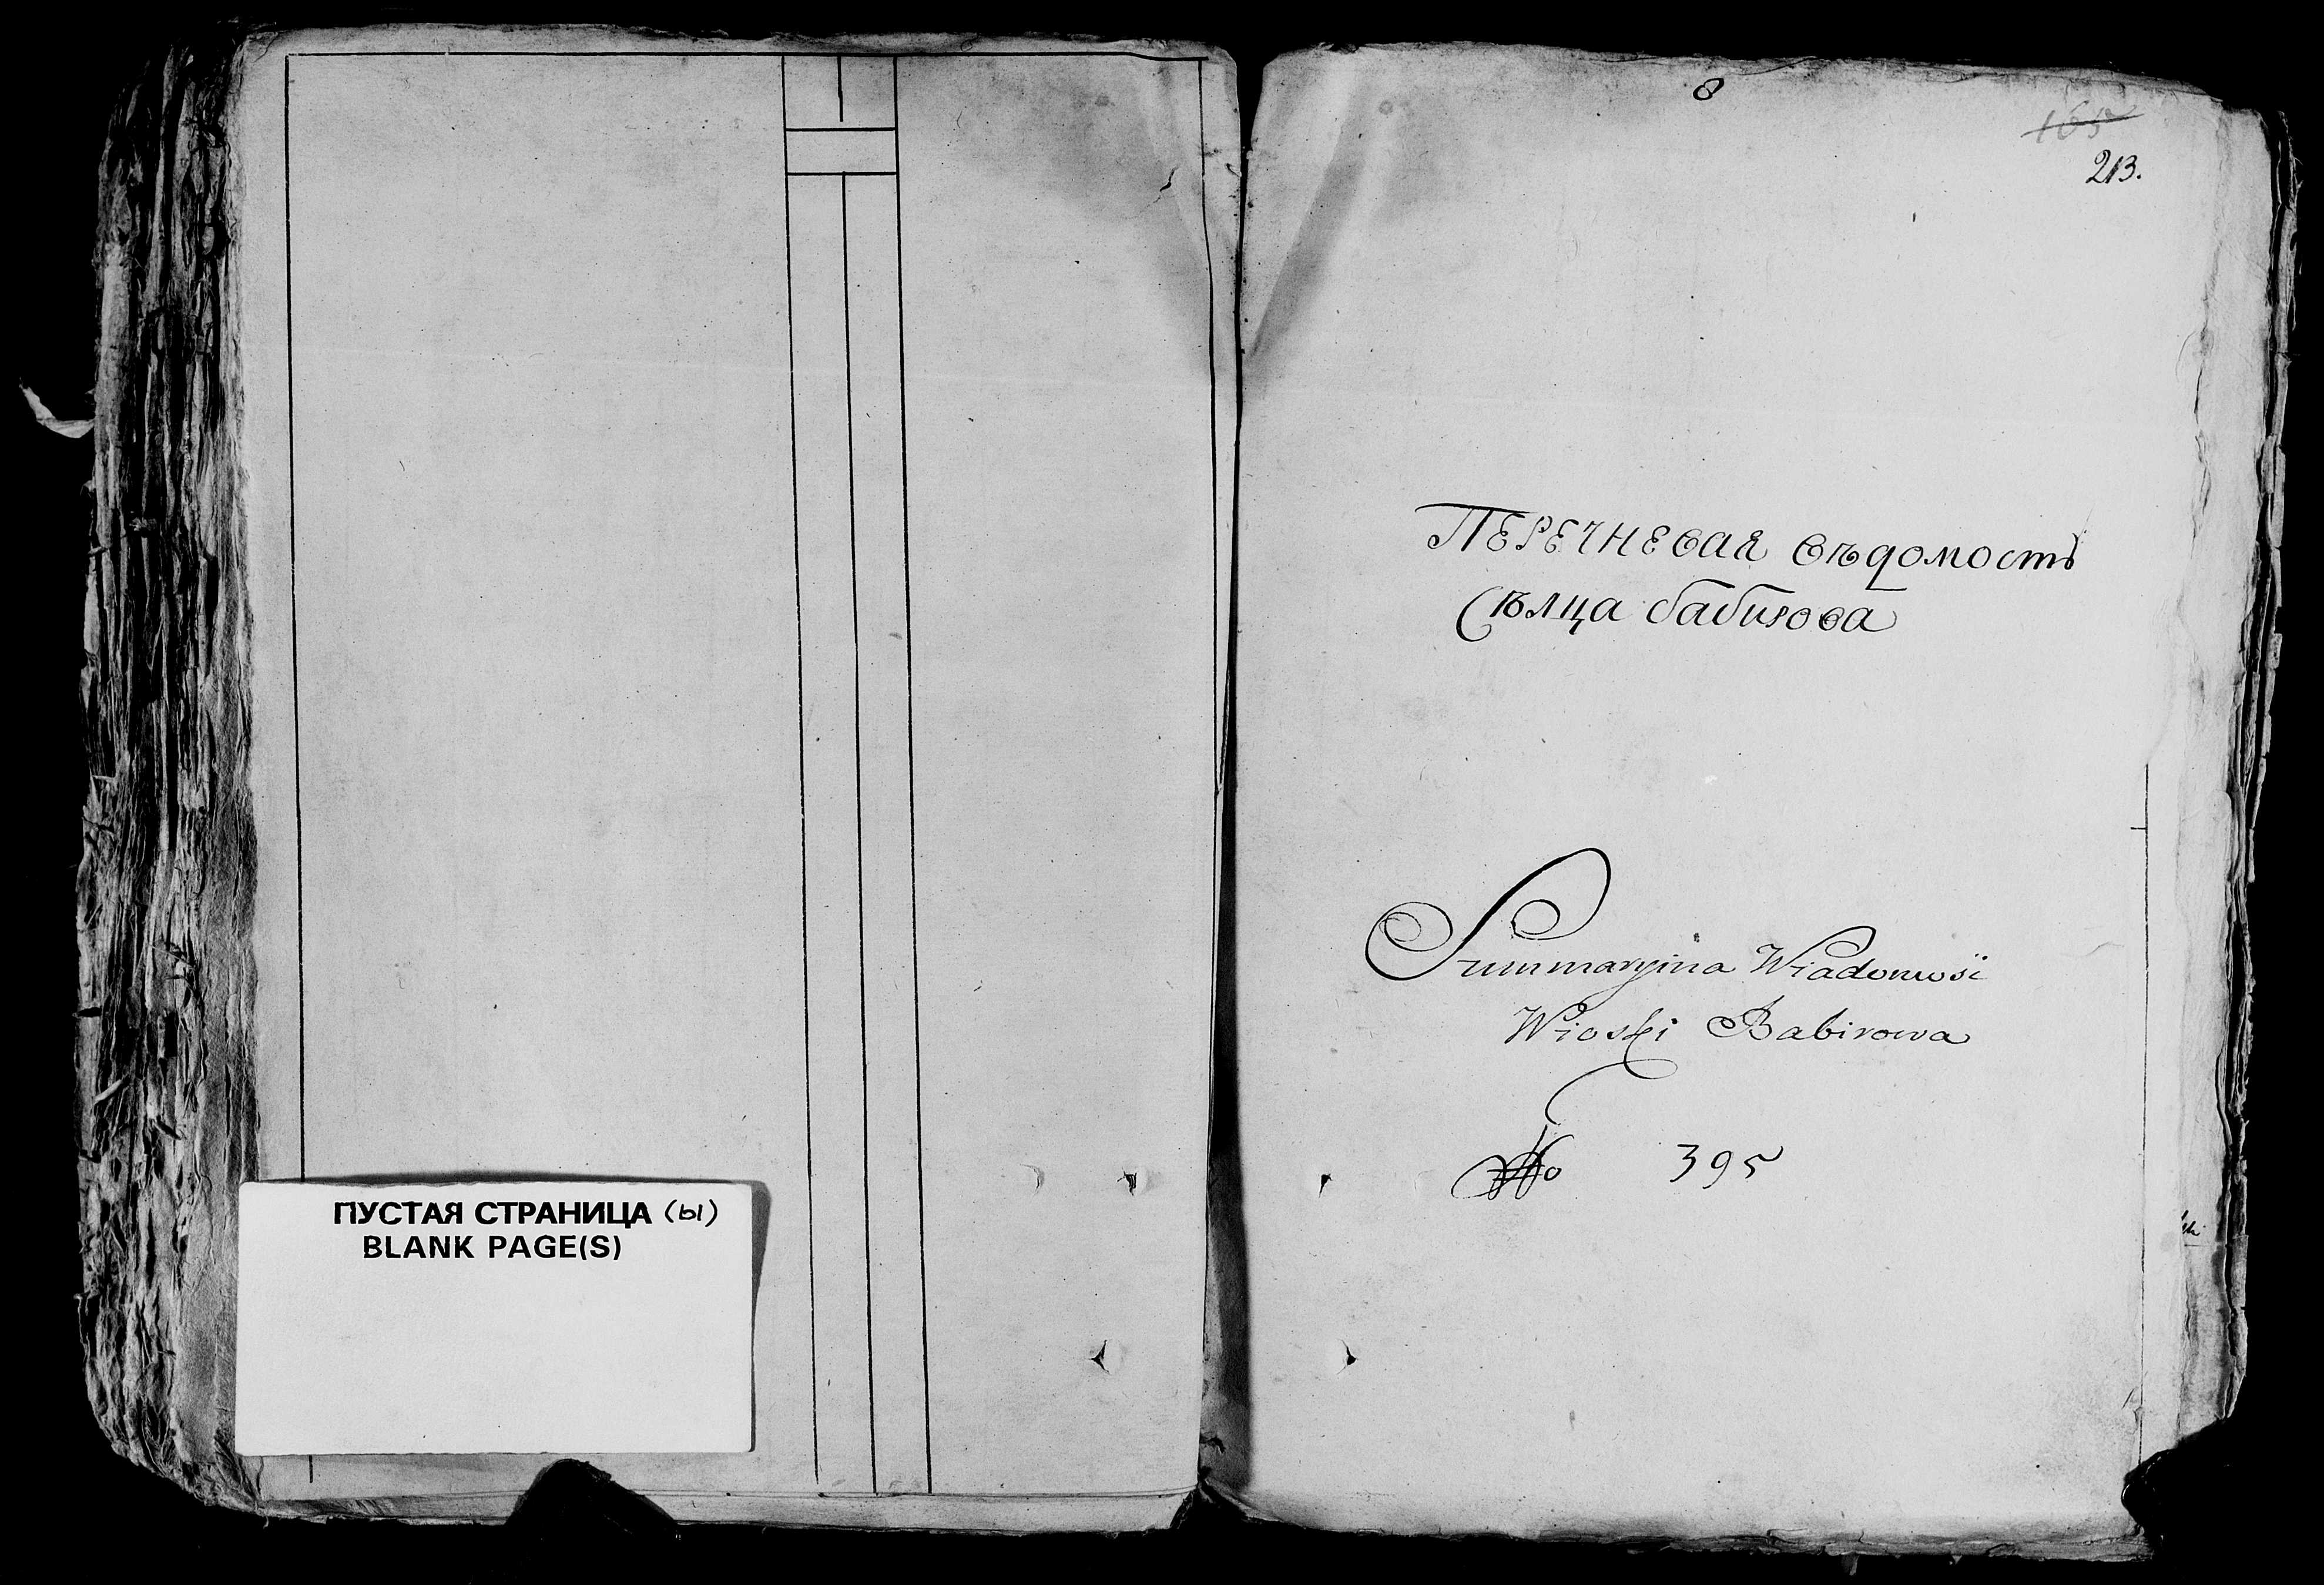 ПУСТАЯ СТРАНИЦА (ы)
BLANK PAGE(S)
8
165
213.
Перечневая вѣдомость
Сѣлца бабирова
Summaryina Wiadomość
Wioski Babirowa
No 395